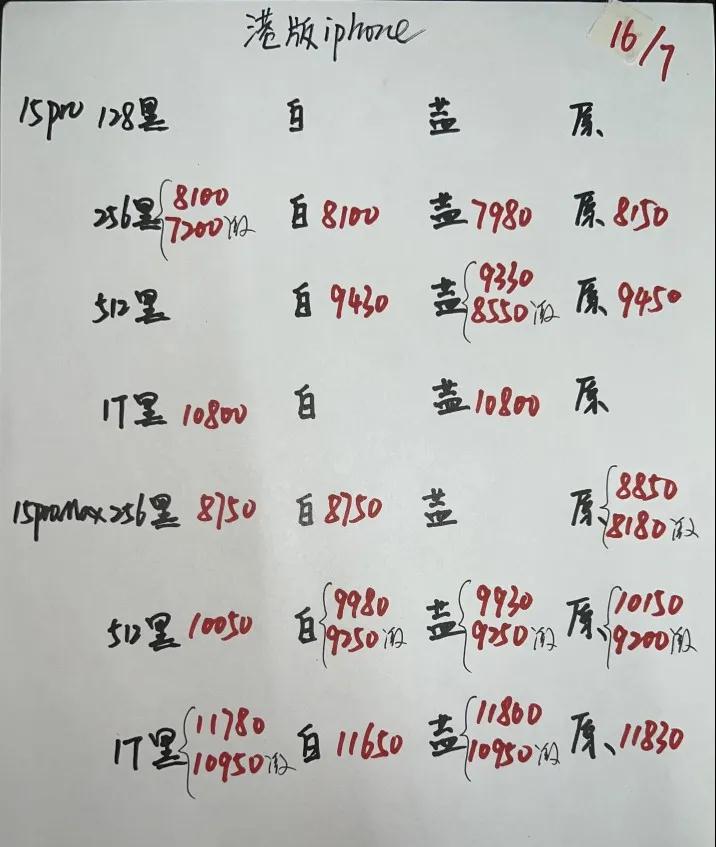 港版iphone 16/7
15pro 128黑 白 蓝 原
256黑 8100 7200激 白 8100 蓝 7980 原 8150
512黑 白 9430 蓝 9330 8550激 原 9450
1T黑 10800 白 蓝 10800 原
15proMax 256黑 8750 白 8750 蓝 原 8850 8180激
512黑 10050 白 9980 9250激 蓝 9930 9250激 原 10150 9200激
1T黑 11780 10950激 白 11650 蓝 11800 10950激 原 11830